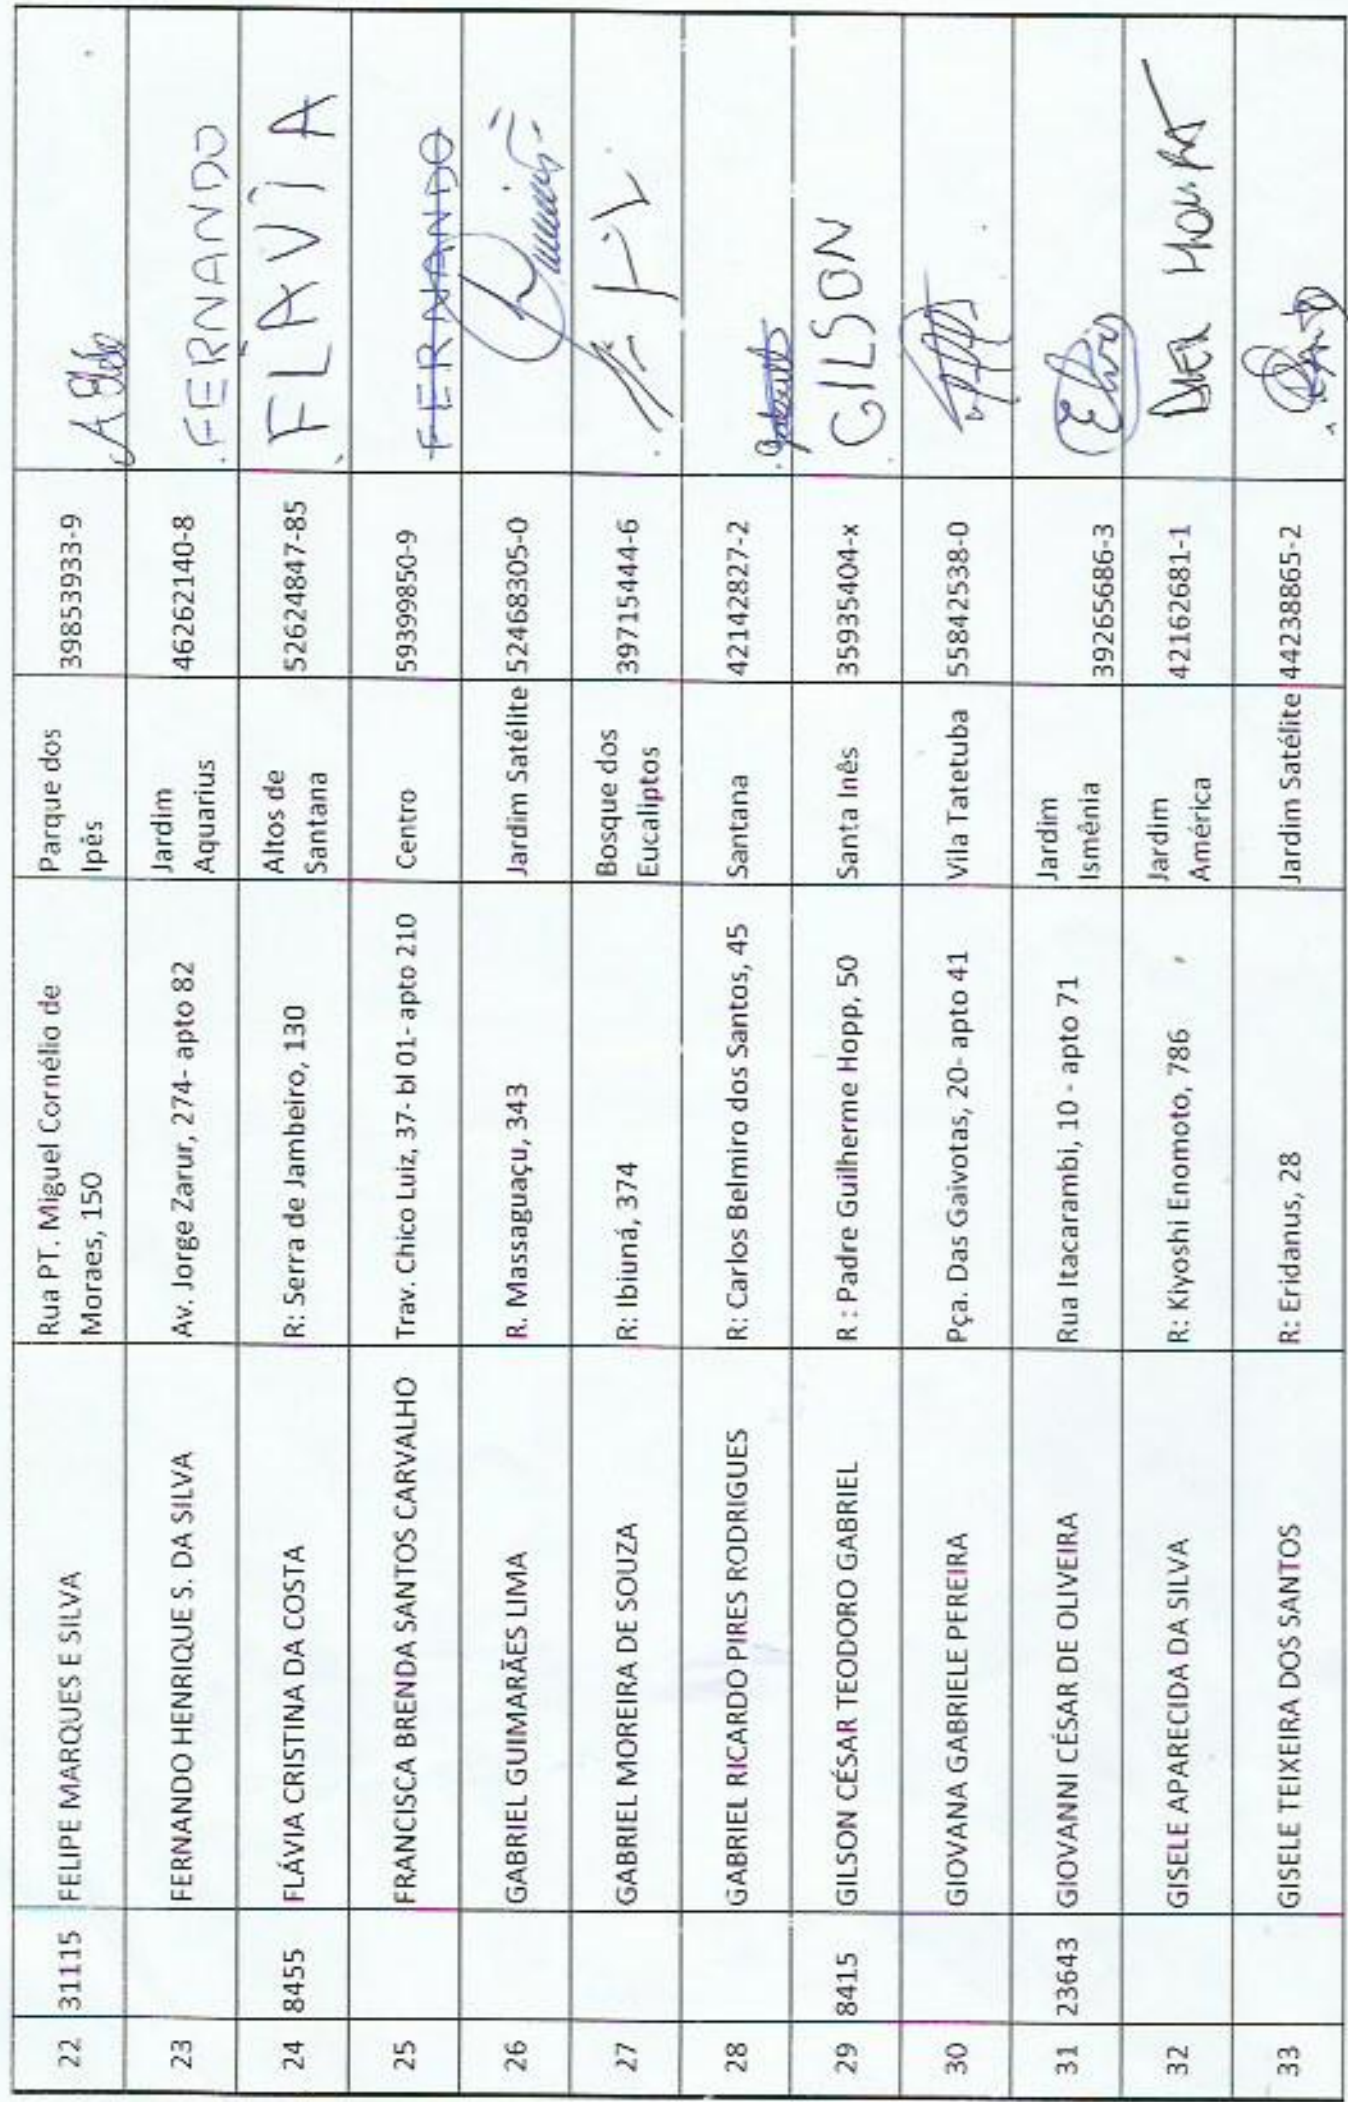 22 31115 FELIPE MARQUES E SILVA Rua PT. Miguel Cornélio de Parque dos 398539­33-9
Moraes, 150 Ipês
23 FERNANDO HENRIQUE S. DA SILVA Av. Jorge Zarur, 274- apto 82 Jardim 46262140-8 FERNANDO
Aquarius
24 8455 FLÁVIA CRISTINA DA COSTA R: Serra de Jambeiro, 130 Altos de 52624847-85 FLAVIA
Santana
25 FRANCISCA BRENDA SANTOS CARVALHO Trav. Chico Luiz, 37- bl 01- apto 210 Centro 59399850-9 FERNANDO
26 GABRIEL GUIMARÃES LIMA R. Massaguaçu, 343 Jardim Satélite 52468305-0
27 GABRIEL MOREIRA DE SOUZA R: Ibiuná, 374 Bosque dos 39715444-6
Eucaliptos
28 GABRIEL RICARDO PIRES RODRIGUES R: Carlos Belmiro dos Santos, 45 Santana 42142827-2
29 8415 GILSON CÉSAR TEODORO GABRIEL R : Padre Guilherme Hopp, 50 Santa Inês 35935404-x GILSON
30 GIOVANA GABRIELE PEREIRA Pça. Das Gaivotas, 20- apto 41 Vila Tatetuba 55842538-0
31 23643 GIOVANNI CÉSAR DE OLIVEIRA Rua Itacarambi, 10 - apto 71 Jardim 39265686-3
Ismênia
32 GISELE APARECIDA DA SILVA R: Kiyoshi Enomoto, 786 Jardim 42162681-1
América
33 GISELE TEIXEIRA DOS SANTOS R: Eridanus, 28 Jardim Satélite 44238865-2